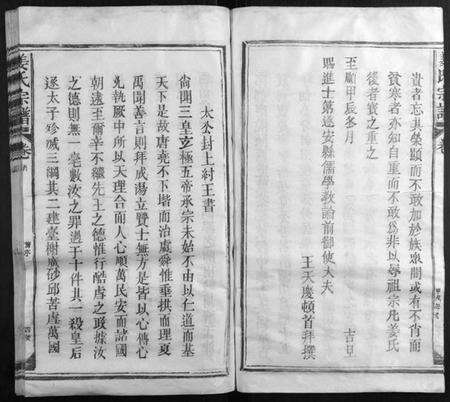 姜氏宗譜
貴者忘其榮顯而不敢加於族衆間或有不肖而
貧寒者亦知自重而不敢為非以辱祖宗凡姜氏
後者寶之重之
至順甲辰冬月 吉日
賜進士第遂安縣儒學教諭前御使大夫
王天慶頓首拜撰
太公封上紂王書
尚聞三皇立極五帝承宗未始不由以仁道而基
天下是故唐堯不下堦而治虞舜惟垂拱而理夏
禹聞善言則拜成湯立賢士無方是皆以心傳心
允執厥中所以天理合而人心順萬民安而諸國
朝遠王爾辛不繼先王之德惟行酷虐之政據汝
之德則無一毫數汝之罪過于十件其一殺皇后
逐太子殄喊三綱其二建臺榭廣砂邱苦虐萬國
姜氏宗譜 卷